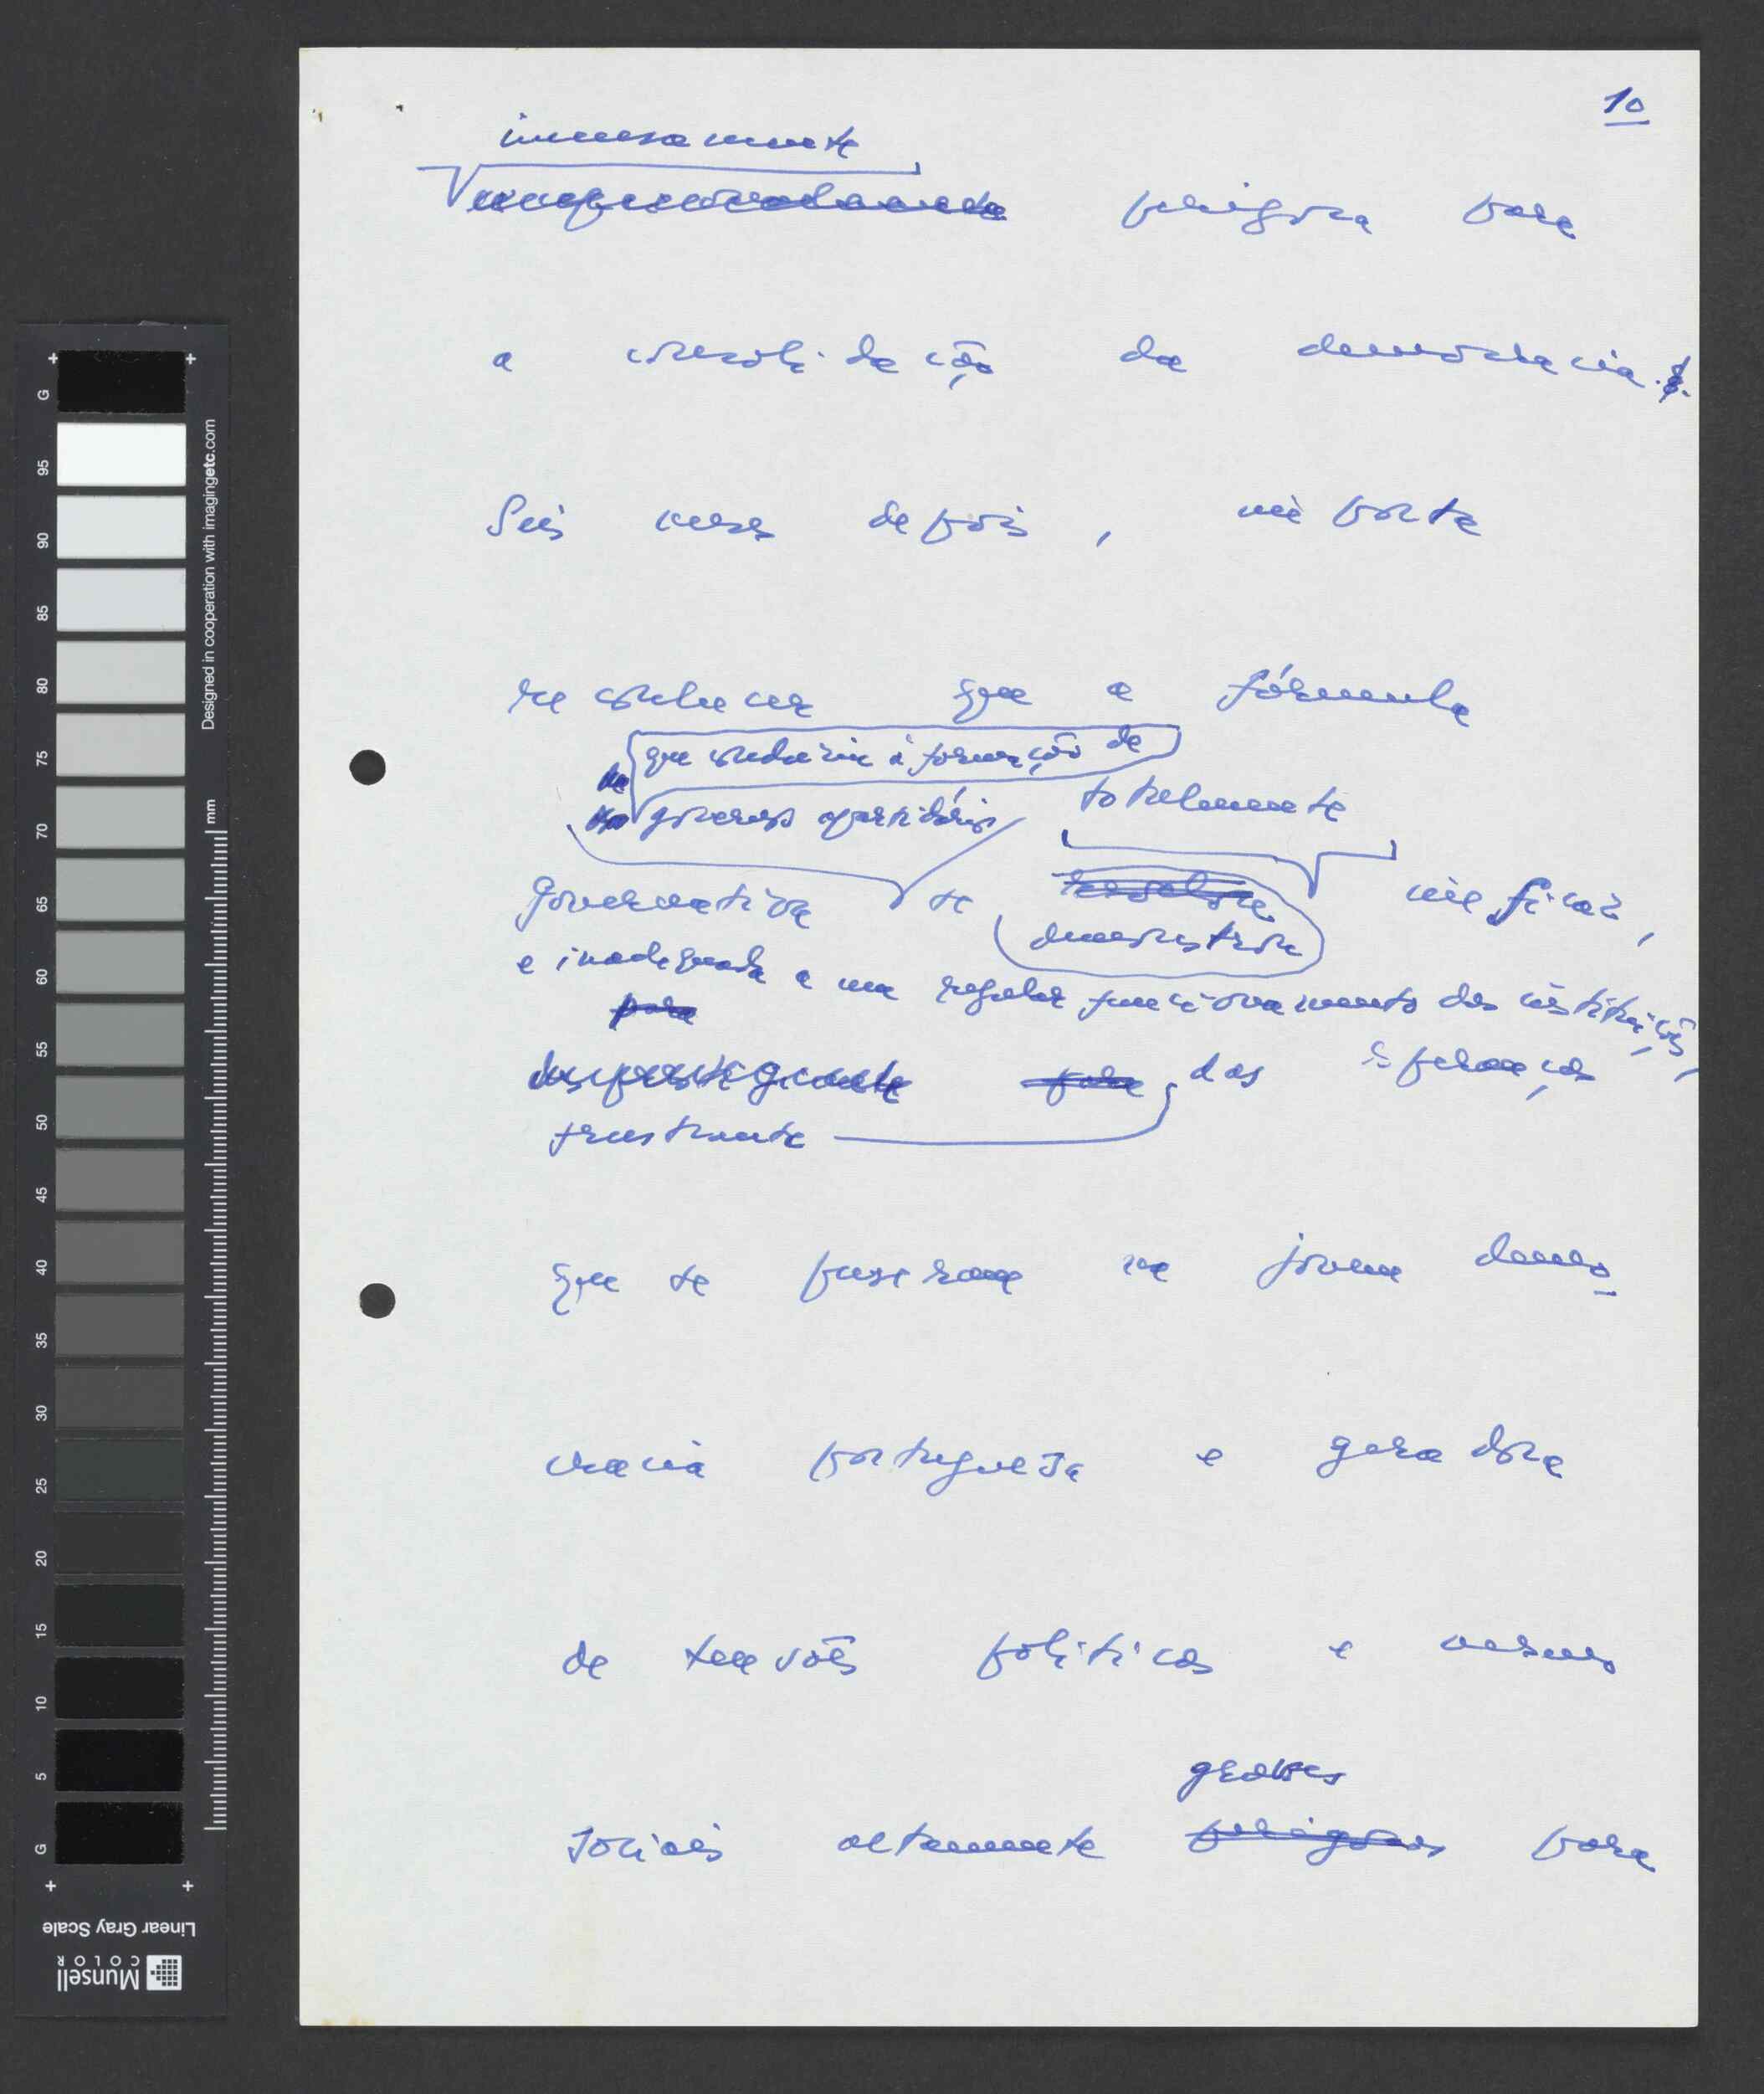 10
imensamente
perigosa para
a consolidação da democracia.
Seis meses depois, importa
reconhecer que a fórmula
que conduziu à formação de
de
governos apartidários totalmente
governativa se resultou ineficaz,
demonstrou
e inadequada a um regular funcionamento das instituições,
para
desprestigiante para das esperanças
frustrante
que se puseram na jovem demo
cracia portuguesa e geradora
de tensões políticas e mesmo
graves
sociais altamente perigosas para
G
95
90
85
80
75
70
65
60
55
50
45
40
35
30
25
20
15
10
5
G
mm
Designed in cooperation with imagingetc.com
Linear Gray Scale
Munsell
COLOR